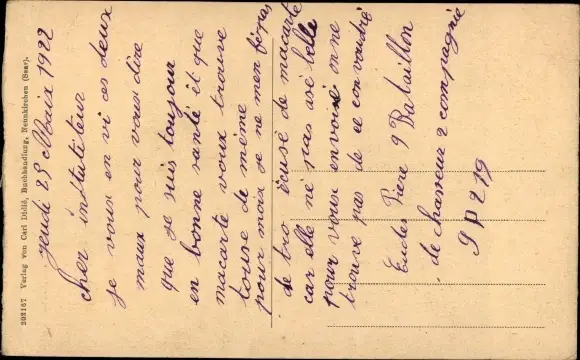 jeudi 25 Maix 1922
cher instutiteur
je vous en vi ces deux
maux pour vous dire
que je suis toujour
en bonne santé et que
macarte voux trouve
touse de même
pour moix je ne men féras
de tro écusé de macarte
car elle né pas asé belle
pour vous envoiré on ne
trouve pas de ce con voudré
Eudes Piere 9 Bataillon
de chasseur 2 compagnie
S P 219
202167 Verlag von Carl Didié, Buchhandlung, Neunkirchen (Saar).